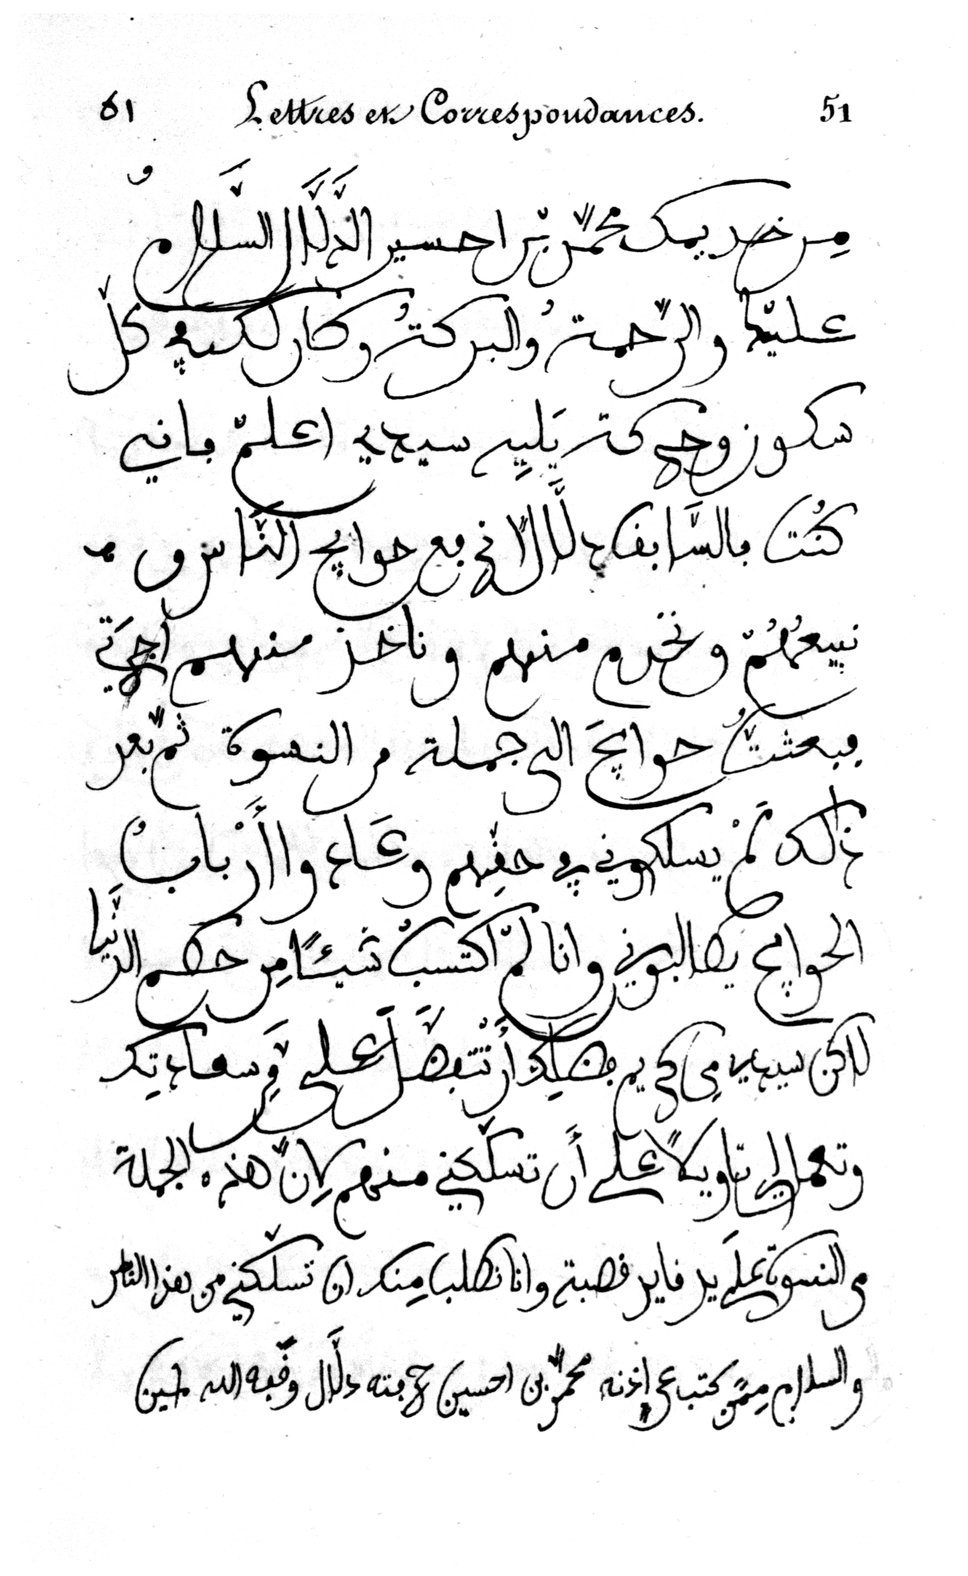 ٥١ Lettres et Correspondances. 51
من خديمك محمّد بن احسين الدَّلَّال السَّلامُ
عليك والرّحمةُ والبركةُ وكان لكم في كلّ
سكون وحركة يَلِيه سيدي اعلمّ باني
كُنْتُ بالسَّابق دلَّالاً في بيع حوايج النَّاس
نبيعُهُمْ ونخدم منهم وناخذ منهم أجرتي
فبعثتُ حوايجَ الى جملة من النسوة ثم بعد
ذالك لَمْ يسلكوني في حقّهم وعَادوا أَرْبابُ
الحوايج يطالبوني وانا لمْ اكتسبْ شَيئًا من حطم الدّنيا
لاكن سيدي من كريم فضلك أَن تتفضّلَ عليَّ سعادتك
وتعمل لي تاويلاً على أَن تسلّكني منهم لانّ هذه الجملة
من النسوة على يد قايد قصبة وانا نطلب منك ان تسلّكني من هذا الناس
والسلام ممّن كتب عن اذنه محمّد بن احسين دلّال وفّقه الله امين